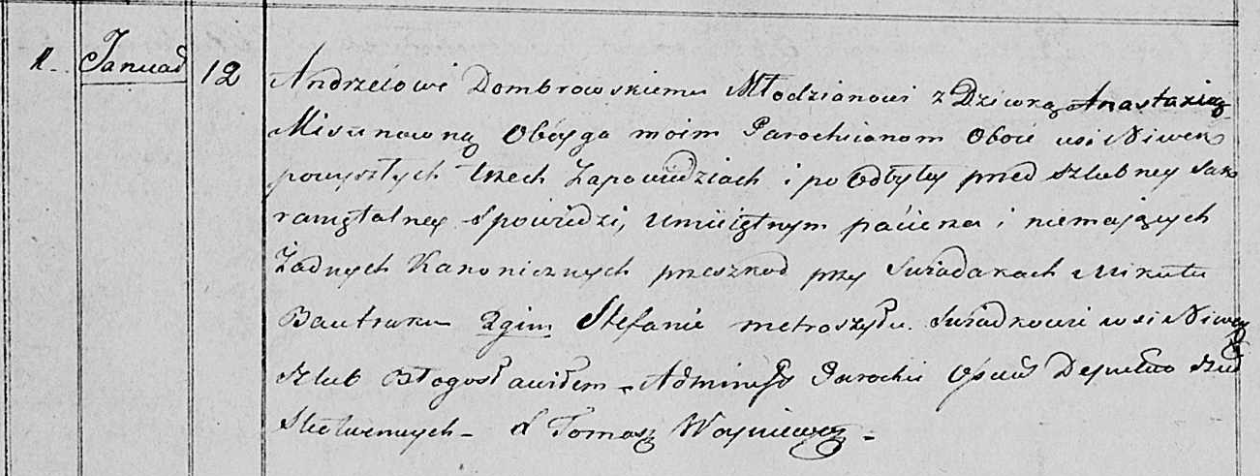 1. Januar 12 Andrzeiowi Dombrowskiemu Młodzianowi z Dziewką Anastazią
Misunowną Obóyga moim Parochianom Oboie wsi Niwek
powyszłych trzech Zapowiedziach i po odbyłey przed szlubney Sak
ramętalney Spowiedzi, umieiętnym pacierza i niemaiących
Żadnych Kanonicznych przeszkod przy Swiadakach Mikułu
Bautruku 2gim Stefanie metroszyłu Swiadkowie wsi Niwek
Szlub Błogosławiłem Parochii
X Tomasz Woyniewicz